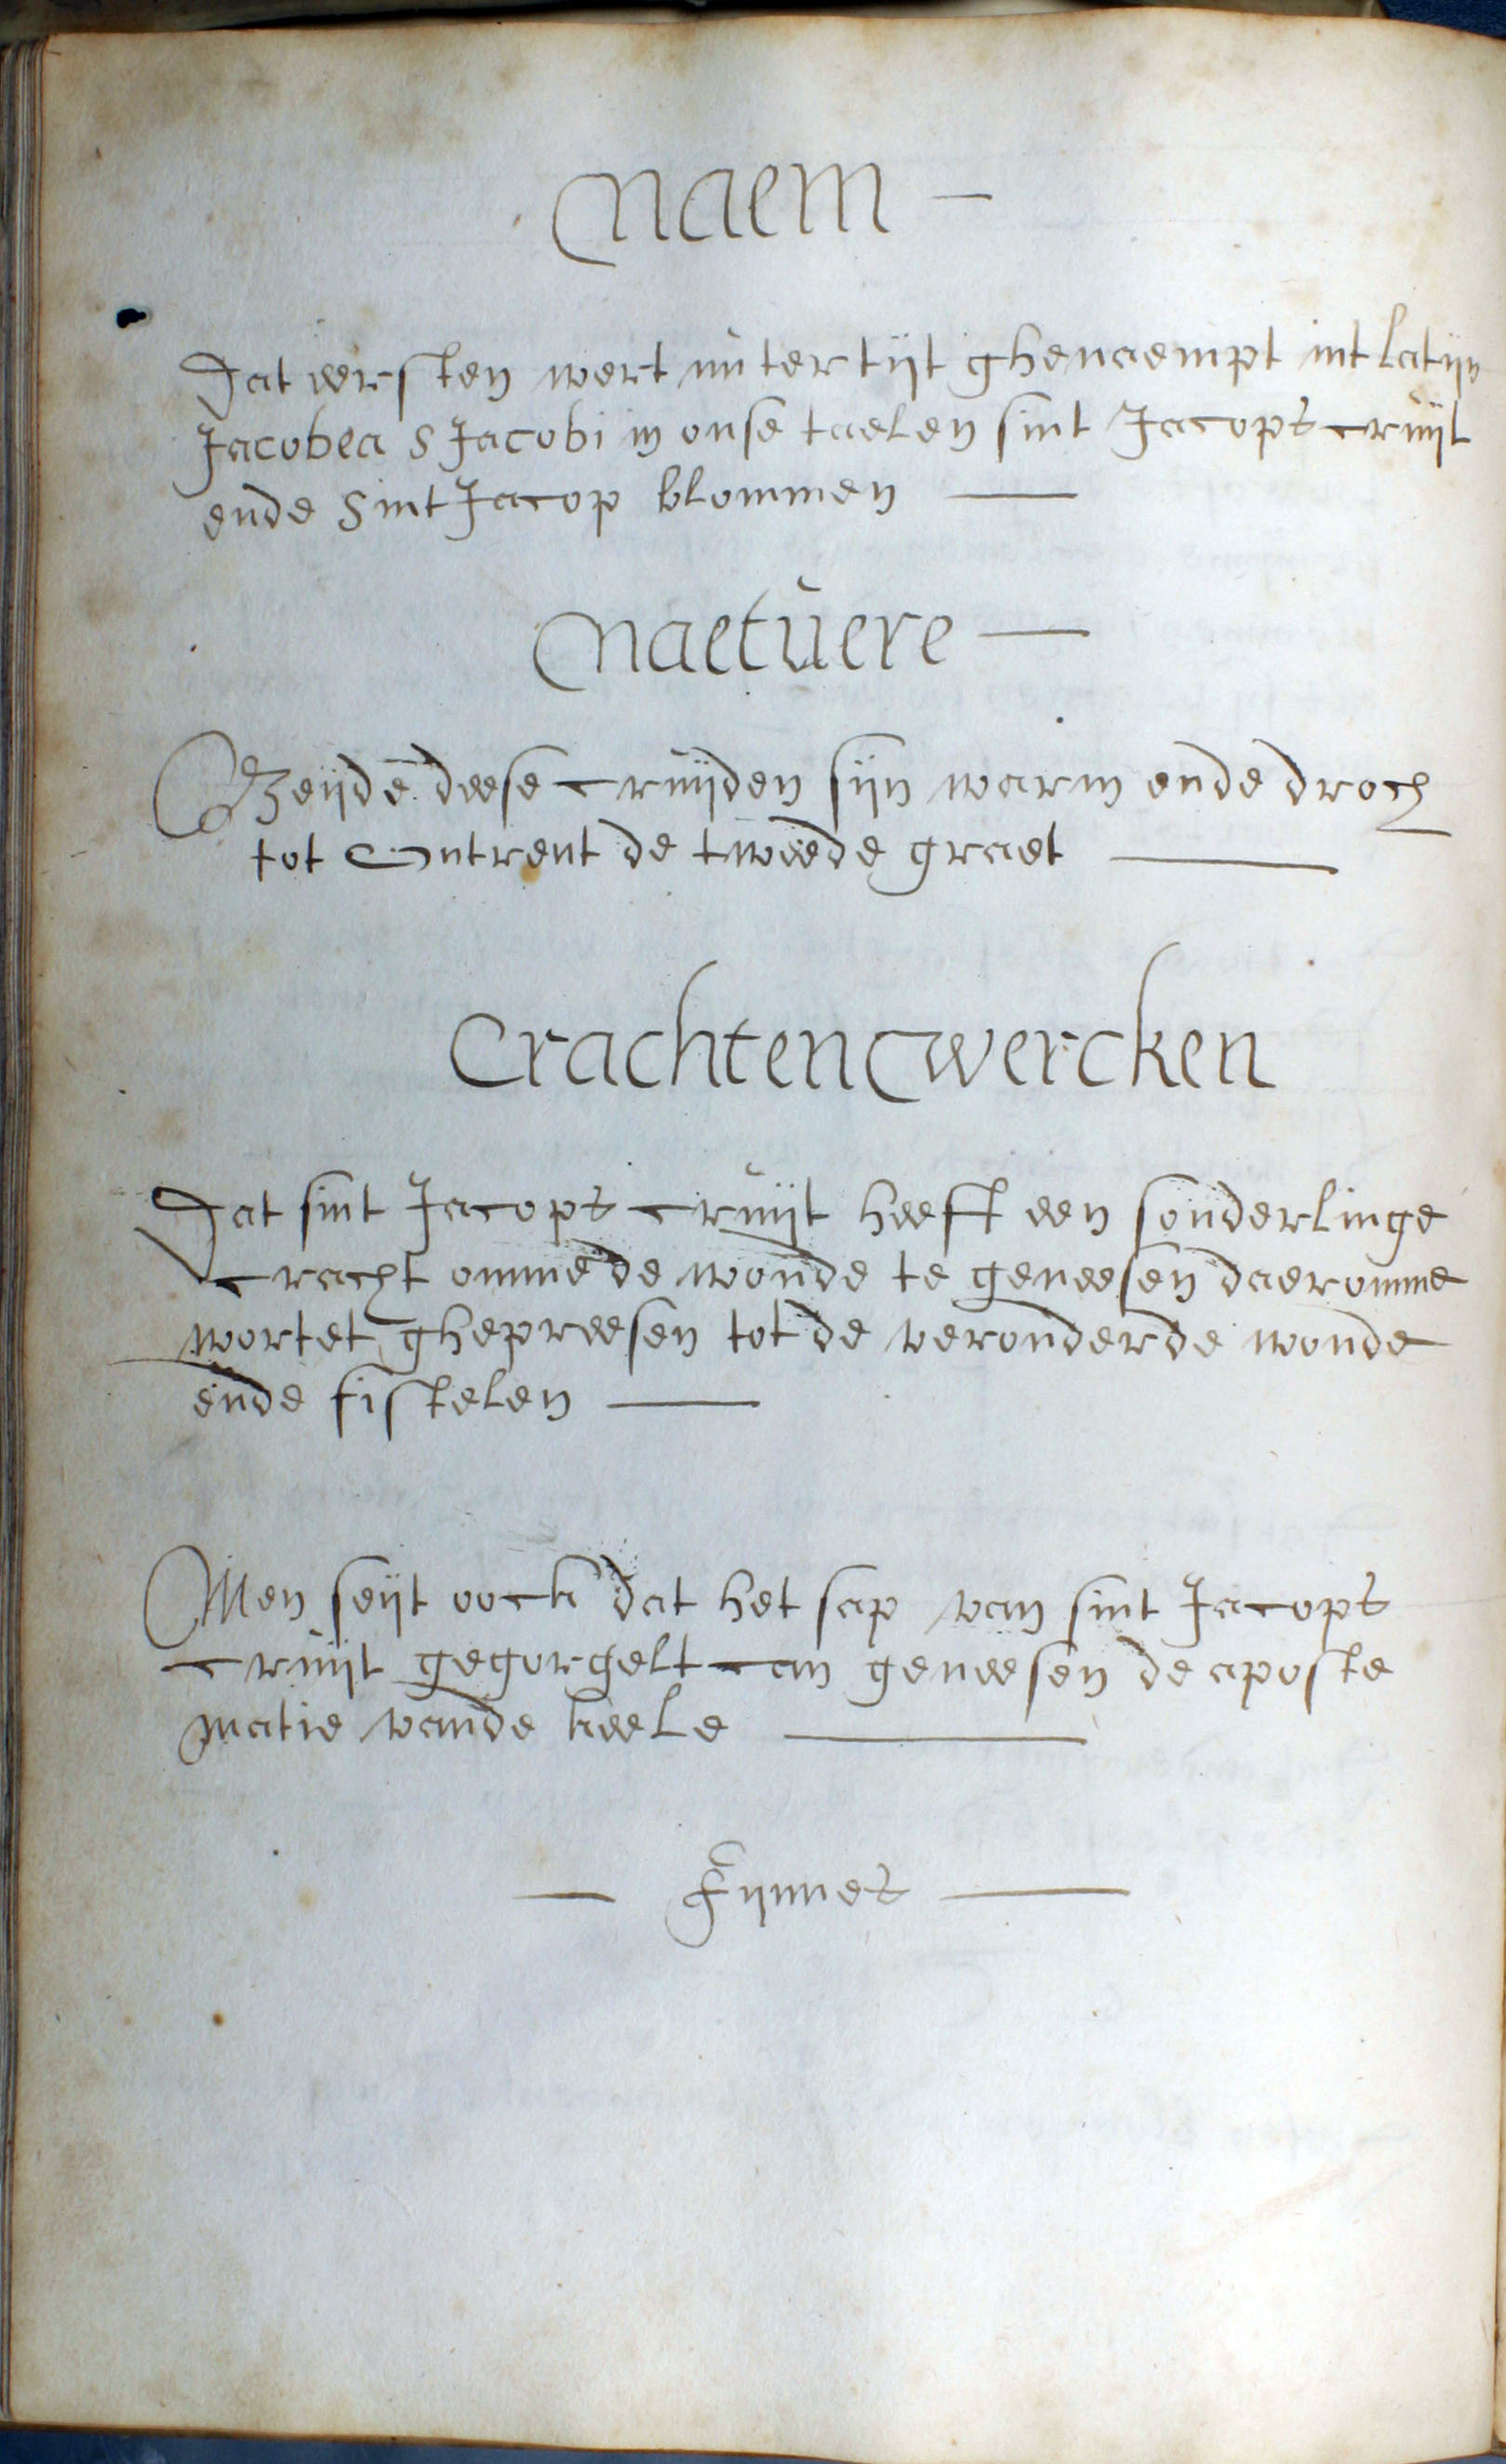 Naem —
Dat eersten wert nu ter tijt ghenaempt int latijn
Jacobea S Jacobi in onse taelen sint Jacops cruijt
ende Sint Jacop blommen —
Naetuere —
Beijde deese cruijden sijn warm ende droch
tot Ontrent de tweede graet —
Crachten Wercken
Dat sint Jacops cruijt heeft een sonderlinge
cracht omme de wonde te geneesen daeromme
wortet ghepreesen tot de veronderde wonde
ende fistelen —
Men seijt oock dat het sap van sint Jacops
cruijt gegorgelt can geneesen de aposte
matie vande keele —
— Fijnnes —